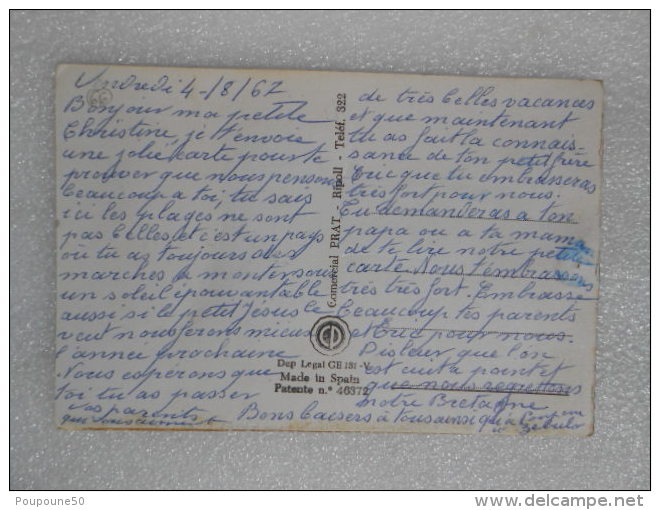 Vendredi 4-/8/67
Bonjour ma petite
Christine, je t'envoie
une jolie carte pour te
prouver que nous pensons
beaucoup a toi, tu sais
ici les plages ne sont
pas belles et c'est un pays
où tu as toujours des
marches a monter sous
un soleil épouvantable
aussi si le petit Jésus le
veut nous ferons mieux
l'année prochaine
Nous espérons que
toi tu as passer
de très belles vacances
et que maintenant
tu as fait la connais-
sance de ton petit frère
Eric que tu embrasseras
très fort pour nous.
Tu demanderas a ton
papa ou a ta mama
de te lire notre petite
carte. Nous t'embrassons
très très fort. Embrasse
beaucoup tes parents
et Eric pour nous.
Dis leur que l'on
est cuit a point et
que nous regrettons
notre Bretagne
Bons baisers à tous ainsi qu'a
Vos parents
qui vous aiment
Comercial PRAT - Ripoll - Teléf. 322
Dep Legal GE 151-V
Made in Spain
Patente n.° 46372
Poupoune50